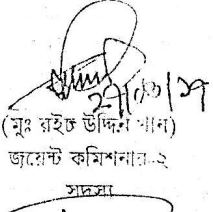 (মুঃ রইচ উদ্দিন খান)
জয়েন্ট কমিশনার-২
সদস্য